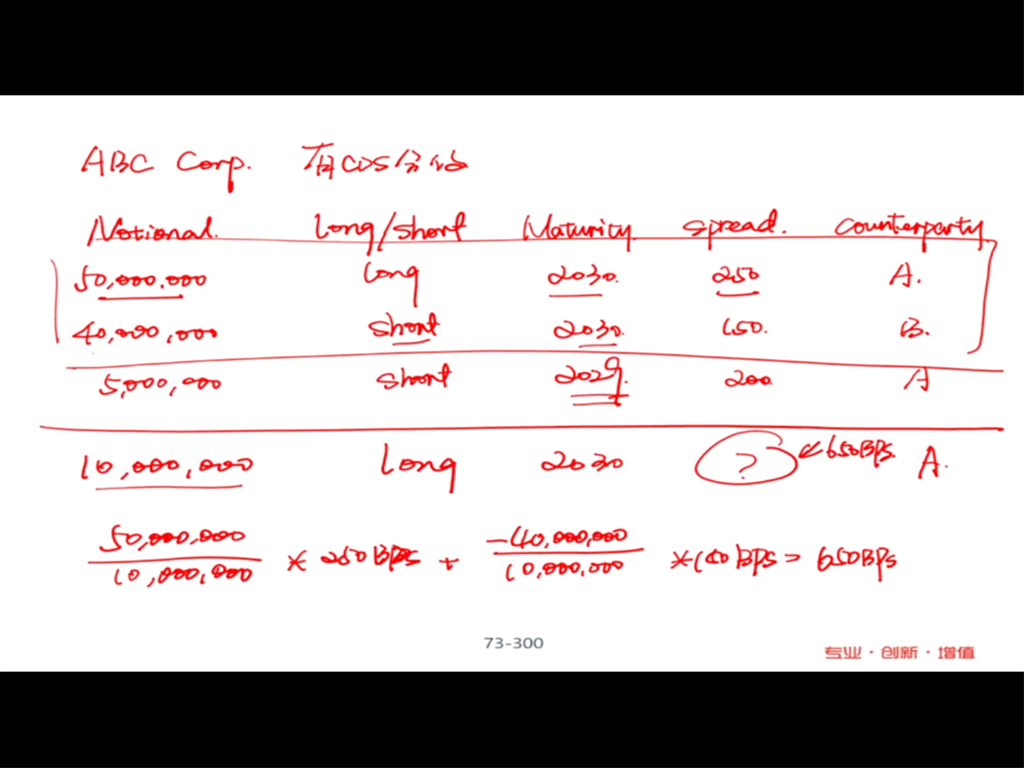 ABC Corp. 有CDS价格
Notional. Long/short Maturity. spread. counterparty
50,000,000 long 2030. 250 A.
40,000,000 short 2030. 150. B.
5,000,000 short 2029. 200 A
10,000,000 Long 2030 ? ↙650BPS. A.
50,000,000/10,000,000 * 250BPS + -40,000,000/10,000,000 * 150BPS = 650BPS
73-300
专业·创新·增值